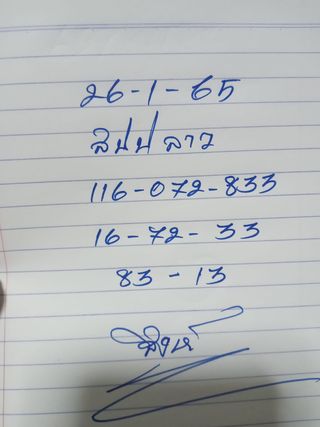 26-1-65
สปป ลาว
116-072-833
16-72-33
83-13
สิงห์